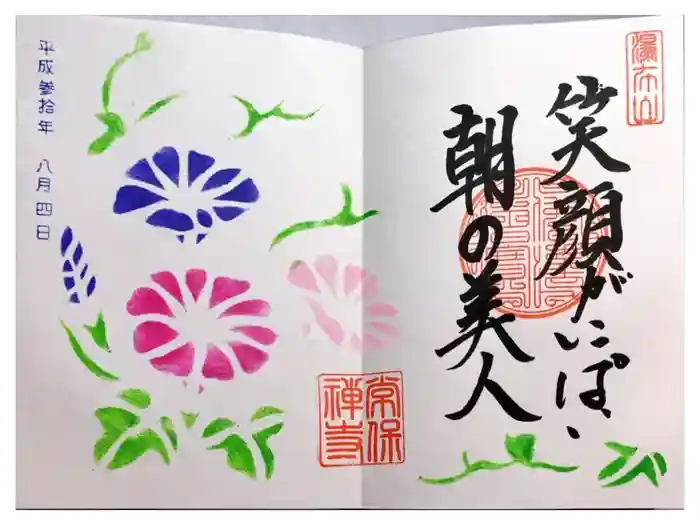 瀑布山
笑顔がいっぱい
朝の美人
常保
禅寺
平成参拾年 八月四日